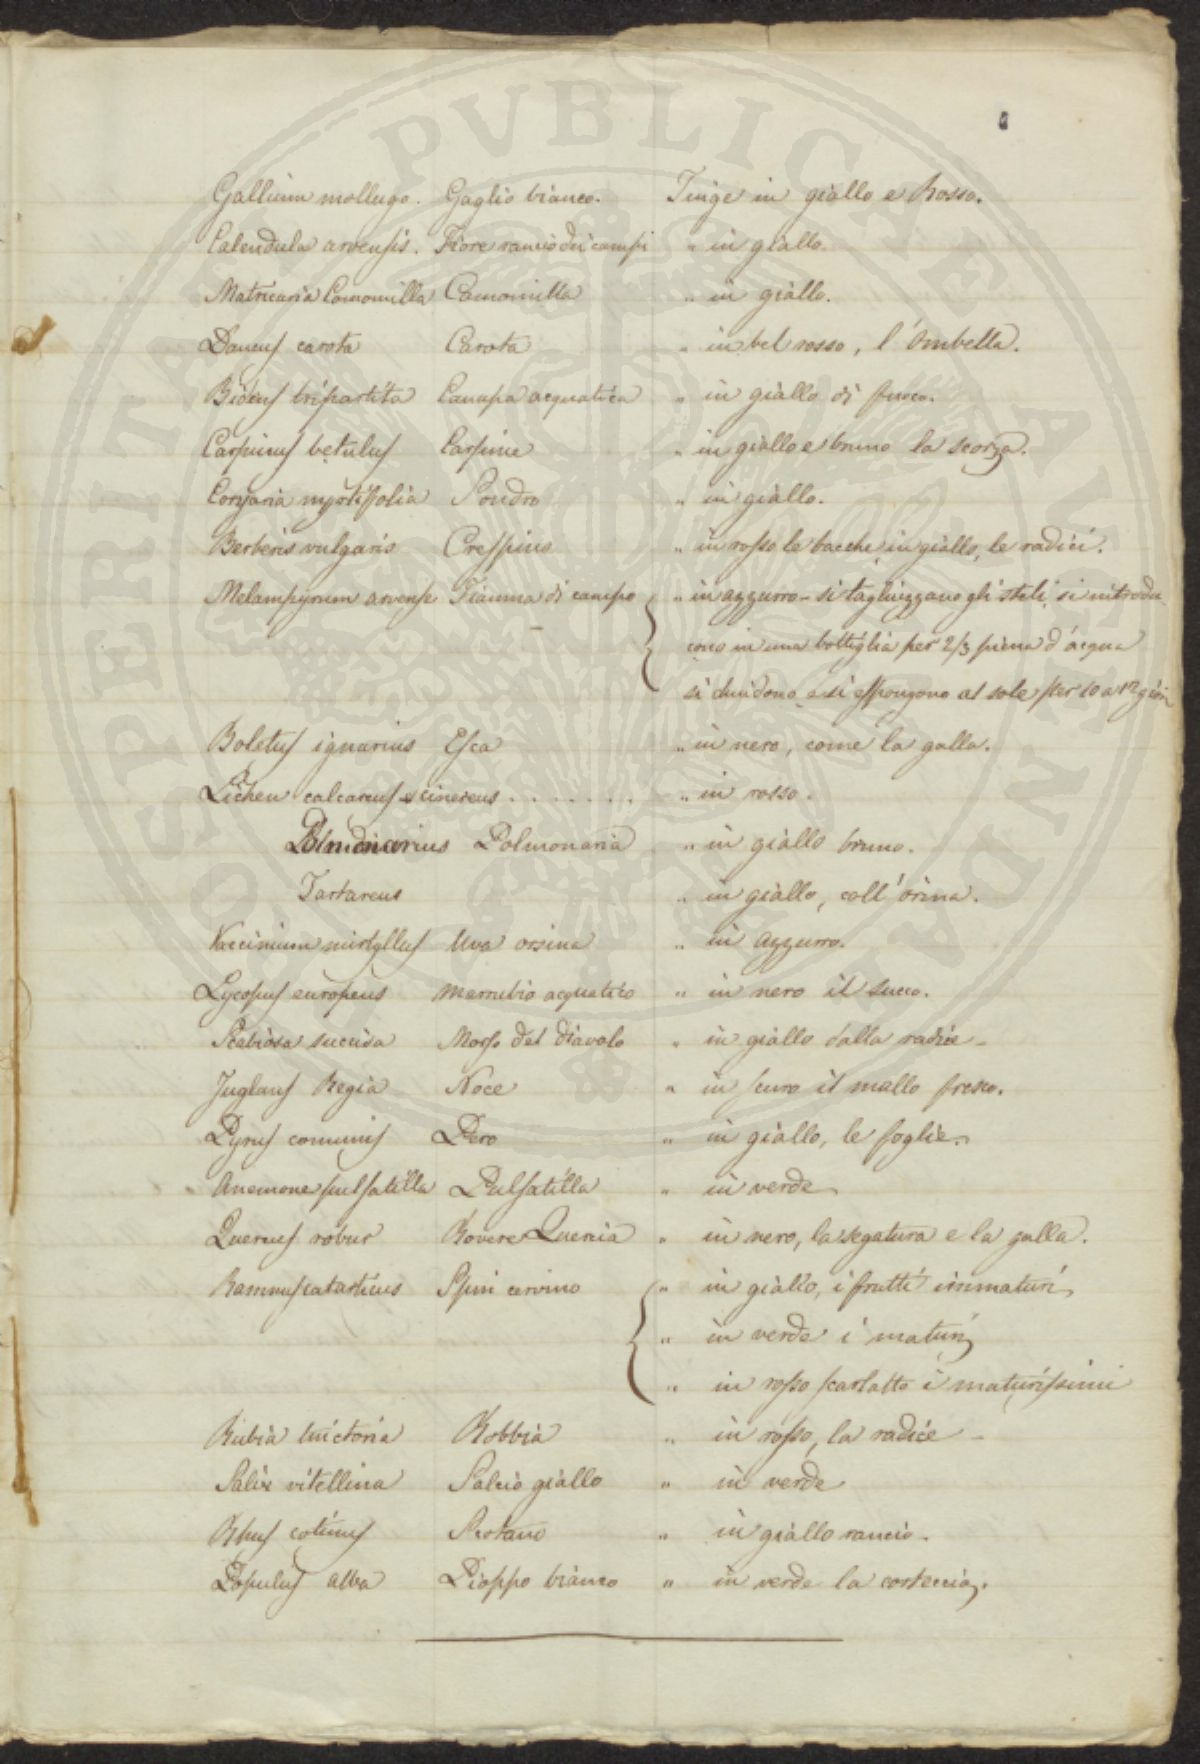 Gallium mollugo. Gaglio bianco. Tinge in giallo e Rosso.
Calendula arvensis. Fiore rancio dei campi " in giallo.
Matricaria Camomilla Camomilla " in giallo.
Daucus carota Carota " in bel rosso, l'Ombella.
Bidens tripartita Canapa acquatica " in giallo di fuoco.
Carpinus betulus Carpine " in giallo e bruno la scorza.
Coryaria myrtifolia " in giallo.
Berberis vulgaris Crespino " in rosso le bacche, in giallo, le radici.
Melampyrum arvense Fiamma di campo " in azzurro - si tagliuzzano gli steli, si introdu
cono in una bottiglia per 2/3 piena d'acqua
si chiudono e si espongono al sole per 10 a 12 giorn
Boletus ignarius Esca " in nero, come la galla.
Lichen calcareus e cinereus . . . . . . . " in rosso.
Polmonarius Polmonaria " in giallo bruno.
Tartareus " in giallo, coll'orina.
Vaccinium mirtyllus Uva orsina " in azzurro.
Lycopus europeus Marrubio acquatico " in nero il succo.
Scabiosa succisa Morso del diavolo " in giallo dalla radice -
Juglans Regia Noce " in scuro il mallo fresco.
Pyrus comunis Pero " in giallo, le foglie.
Anemone pulsatilla Pulsatilla " in verde
Quercus robur Rovere Quercia " in nero, la segatura e la galla.
Ramnus catarticus Spin cervino " in giallo, i frutti immaturi
" in verde i maturi
" in rosso scarlatto i maturissimi
Rubia tinctoria Robbia " in rosso, la radice -
Salix vitellina Salcio giallo " in verde
Rhus cotinus Scotano " in giallo rancio.
Populus alba Pioppo bianco " in verde la corteccia.
PROSPERITATI PVBLICAE AVGENDAE